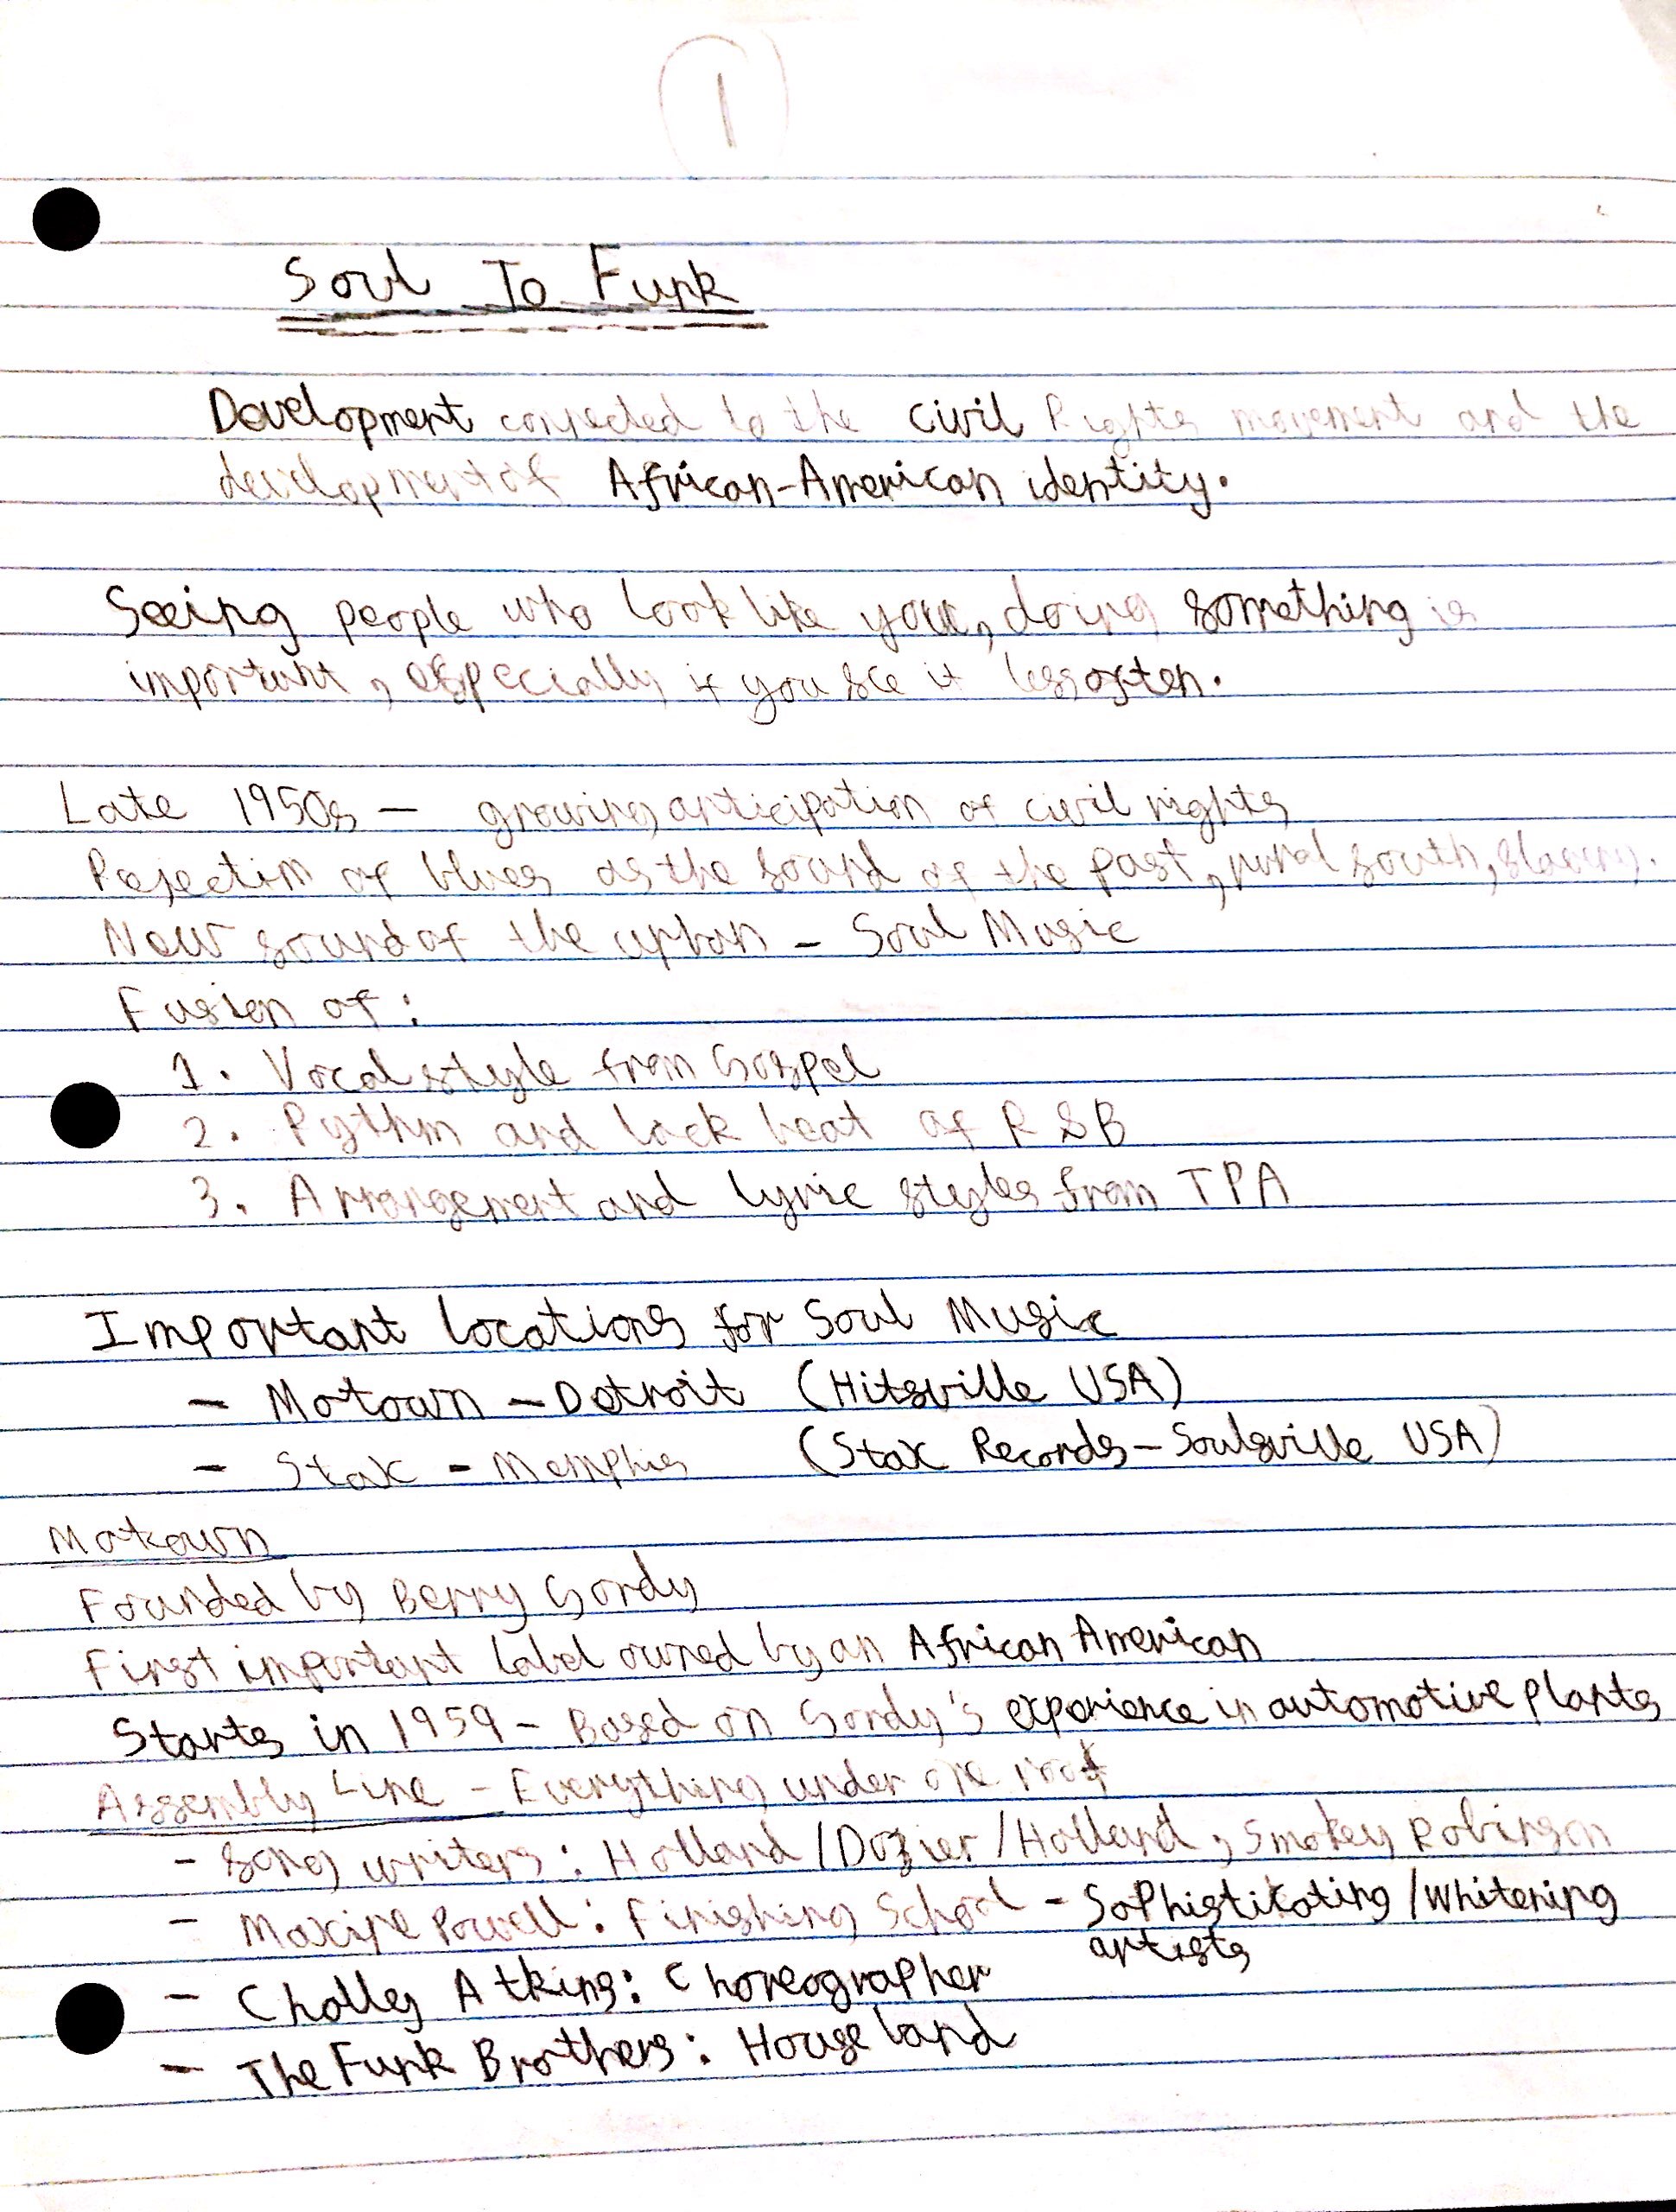 1
Soul To Funk
Development connected to the Civil Rights movement and the
development of African-American identity.
Seeing people who look like you, doing something is
important, especially if you see it less often.
Late 1950s - growing anticipation of civil rights
Rejection of blues as the sound of the past, rural south, slavery.
New sound of the urban - Soul Music
Fusion of:
1. Vocal style from Gospel
2. Rythm and back beat of R&B
3. Arrangement and lyric styles from TPA
Important locations for Soul Music
- Motown - Detroit (Hitsville USA)
- Stax - Memphis (Stax Records - Soulsville USA)
Motown
Founded by Berry Gordy
First important label owned by an African American
Starts in 1959 - Based on Gordy's experience in automotive plants
Assembly Line - Everything under one roof
- Song writers: Holland/Dozier/Holland, Smokey Robinson
- Maxine Powell: Finishing School - Sophistikating/Whitening
artists
- Cholly Atkins: Choreographer
- The Funk Brothers: House band